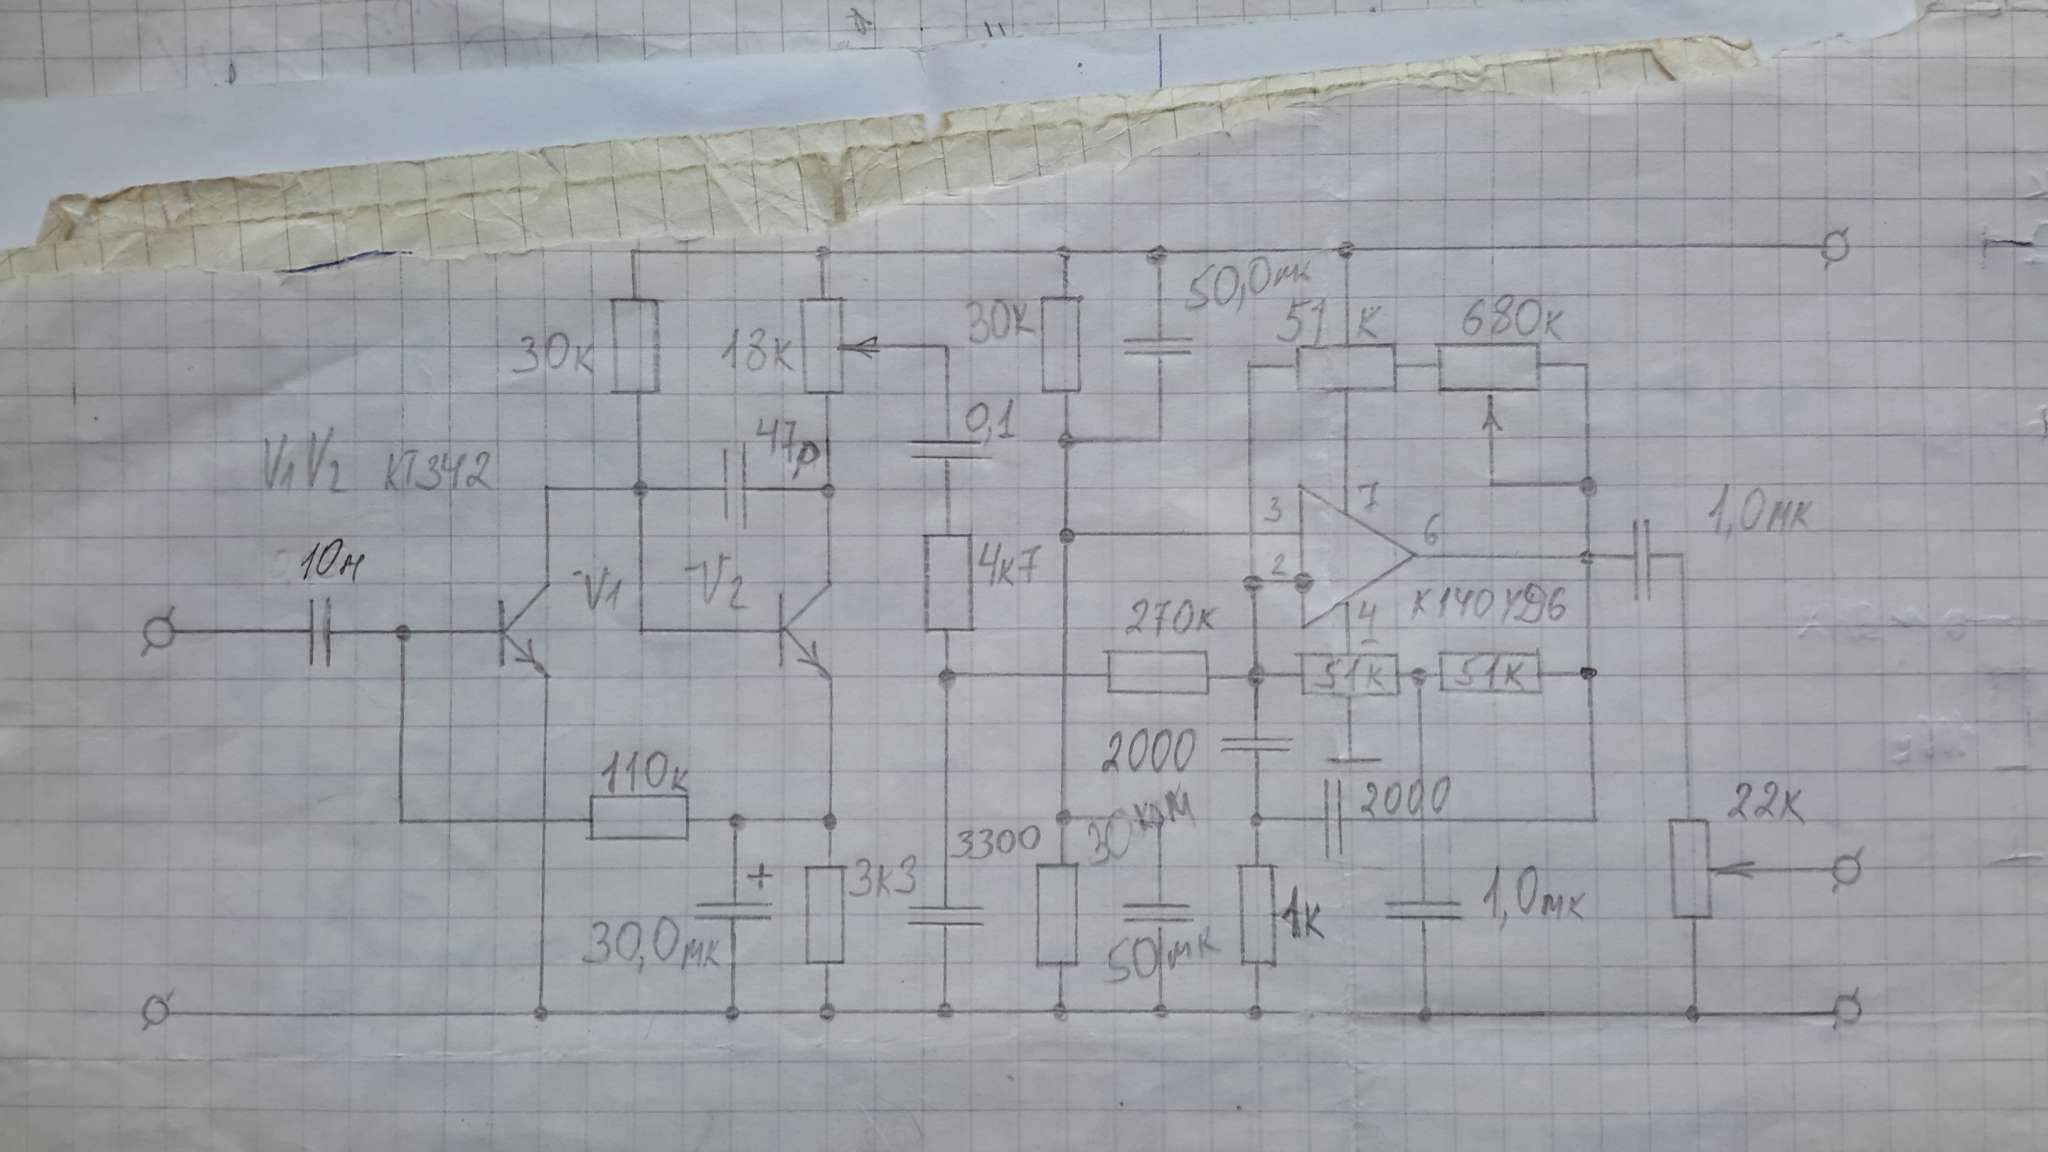 50,0мк
51 к 680к
30к 18к 30к
0,1
47р
V1 V2 КТ342
1,0мк
3 7
6
10н V1 V2 4к7 2
К140УД6
4
270к
51к 51к
2000
110к
2000
22к
3300 30к
3к3
30,0мк 50мк 1к 1,0мк
+